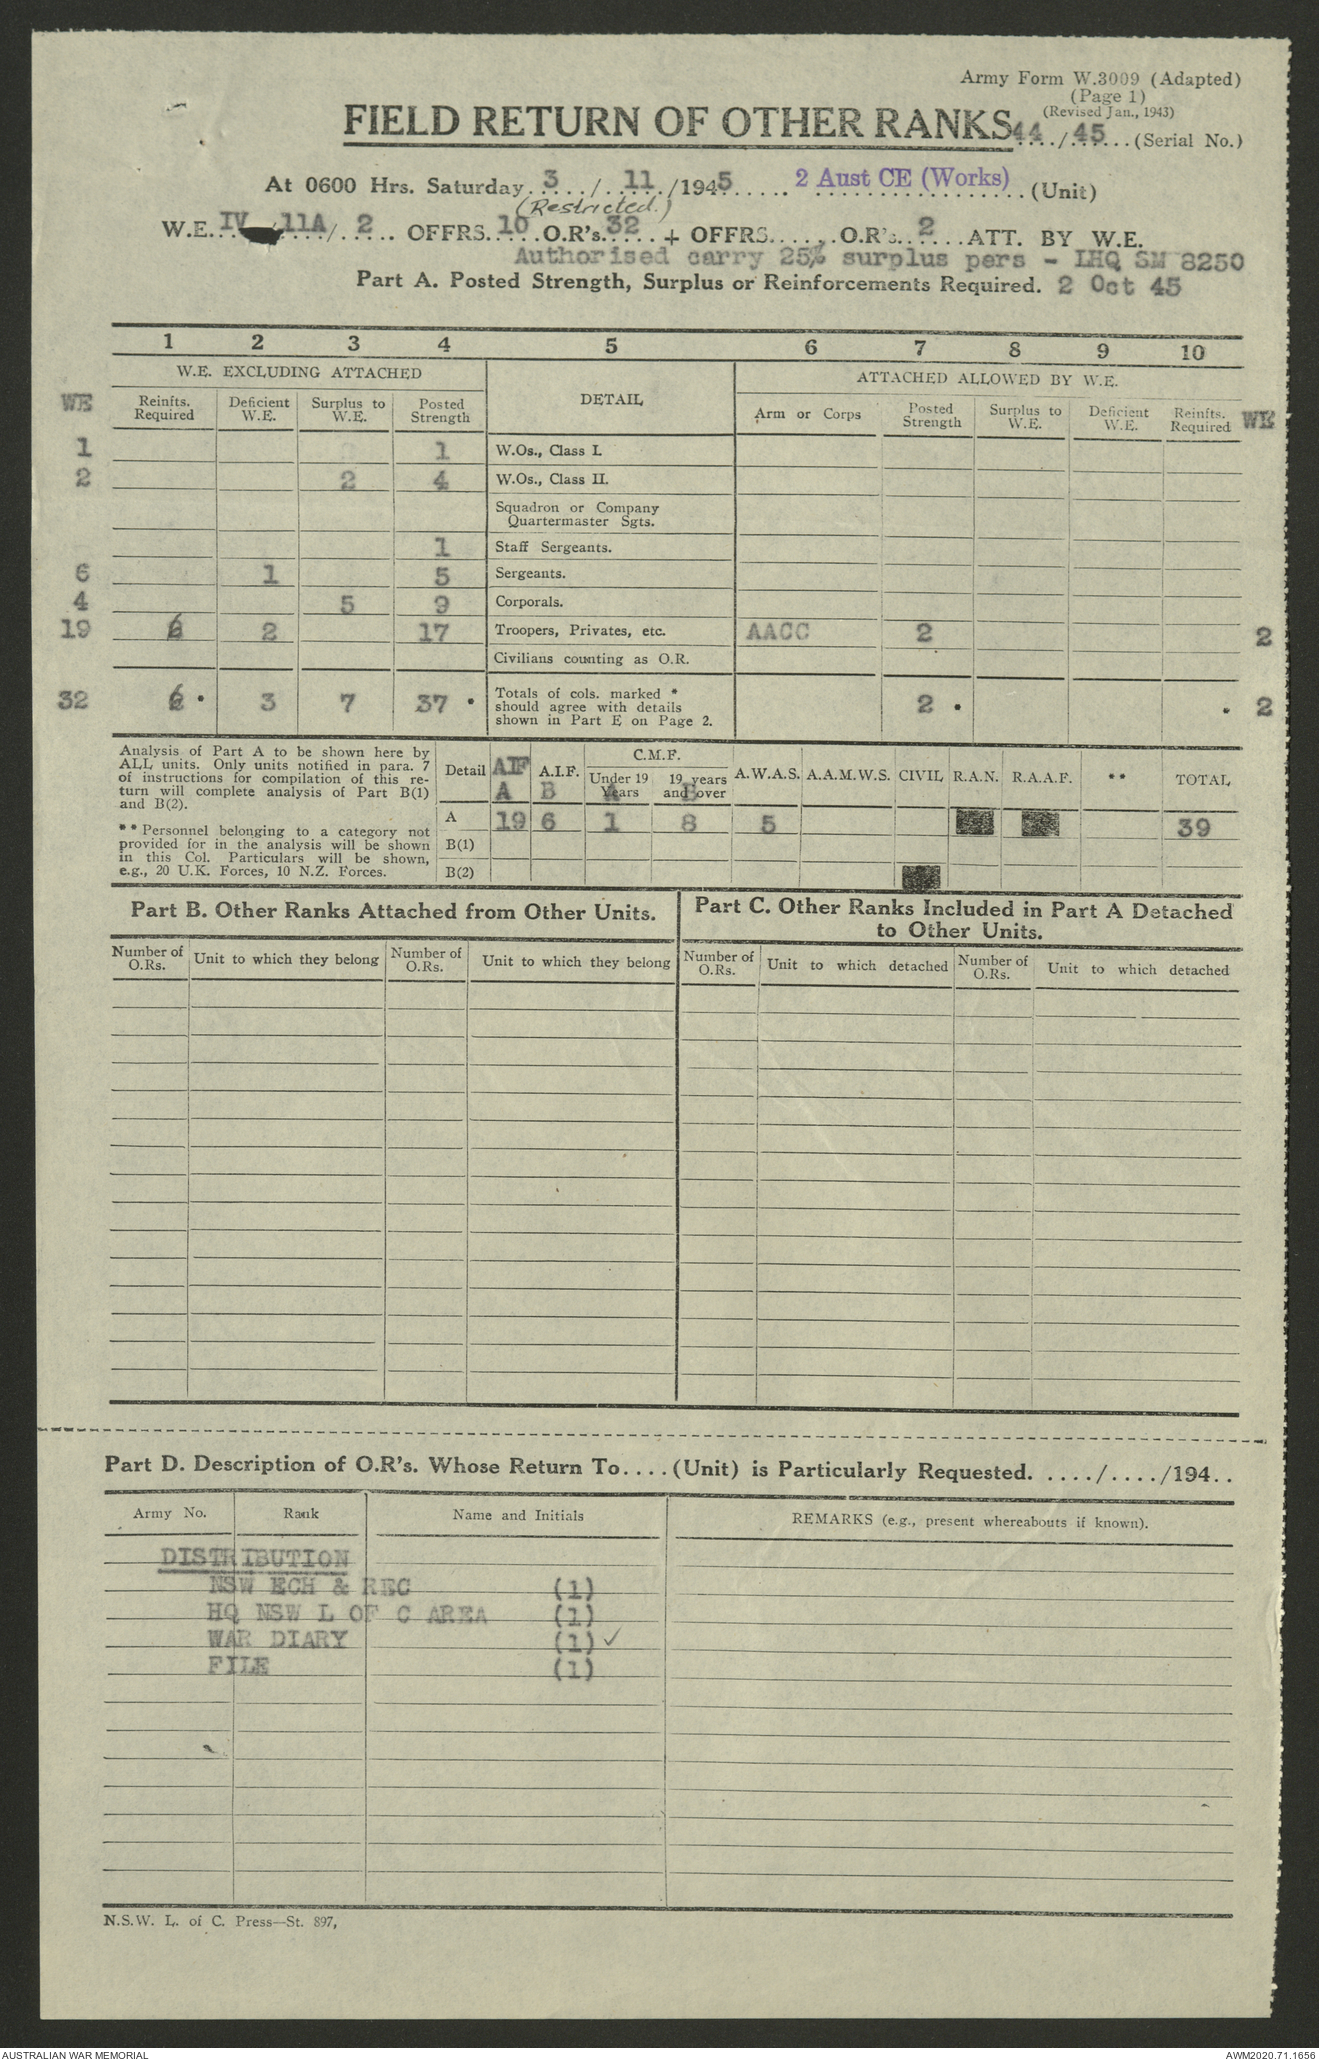 Army Form W.3009 (Adapted)
(Page 1)
(Revised Jan., 1943)
FIELD RETURN OF OTHER RANKS 44/45 (Serial No.)
At 0600 Hrs. Saturday 3/11/1945 2 Aust CE (Works) (Unit)
(Restricted.)
W.E. IV/11A/2 OFFRS. 10 O.R's. 32 + OFFRS....... O.R's. 2 ATT. BY W.E.
Authorised carry 25% surplus pers - LHQ SM 8250
Part A. Posted Strength, Surplus or Reinforcements Required. 2 Oct 45
1 2 3 4 5 6 7 8 9 10
W.E. EXCLUDING ATTACHED DETAIL ATTACHED ALLOWED BY W.E.
WE Reinfts. Required Deficient W.E. Surplus to W.E. Posted Strength Arm or Corps Posted Strength Surplus to W.E. Deficient W.E. Reinfts. Required WE
1 1 W.Os., Class I.
2 2 4 W.Os., Class II.
Squadron or Company
Quartermaster Sgts.
1 Staff Sergeants.
6 1 5 Sergeants.
4 5 9 Corporals.
19 6 2 17 Troopers, Privates, etc. AACC 2 2
Civilians counting as O.R.
32 6 * 3 7 37 * Totals of cols. marked * 2 * * 2
should agree with details
shown in Part E on Page 2.
Analysis of Part A to be shown here by
ALL units. Only units notified in para. 7
of instructions for compilation of this re-
turn will complete analysis of Part B(1)
and B(2).
** Personnel belonging to a category not
provided for in the analysis will be shown
in this Col. Particulars will be shown,
e.g., 20 U.K. Forces, 10 N.Z. Forces.
C.M.F.
Detail AIF A.I.F. Under 19 Years 19 years and over A.W.A.S. A.A.M.W.S. CIVIL R.A.N. R.A.A.F. ** TOTAL
A B A B
A 19 6 1 8 5 39
B(1)
B(2)
Part B. Other Ranks Attached from Other Units.
Part C. Other Ranks Included in Part A Detached
to Other Units.
Number of O.Rs. Unit to which they belong Number of O.Rs. Unit to which they belong Number of O.Rs. Unit to which detached Number of O.Rs. Unit to which detached
Part D. Description of O.R's. Whose Return To.... (Unit) is Particularly Requested. ..../..../194..
Army No. Rank Name and Initials REMARKS (e.g., present whereabouts if known).
DISTRIBUTION
NSW ECH & REC (1)
HQ NSW L OF C AREA (1)
WAR DIARY (1) ✓
FILE (1)
N.S.W. L. of C. Press—St. 897,
AUSTRALIAN WAR MEMORIAL AWM2020.71.1656